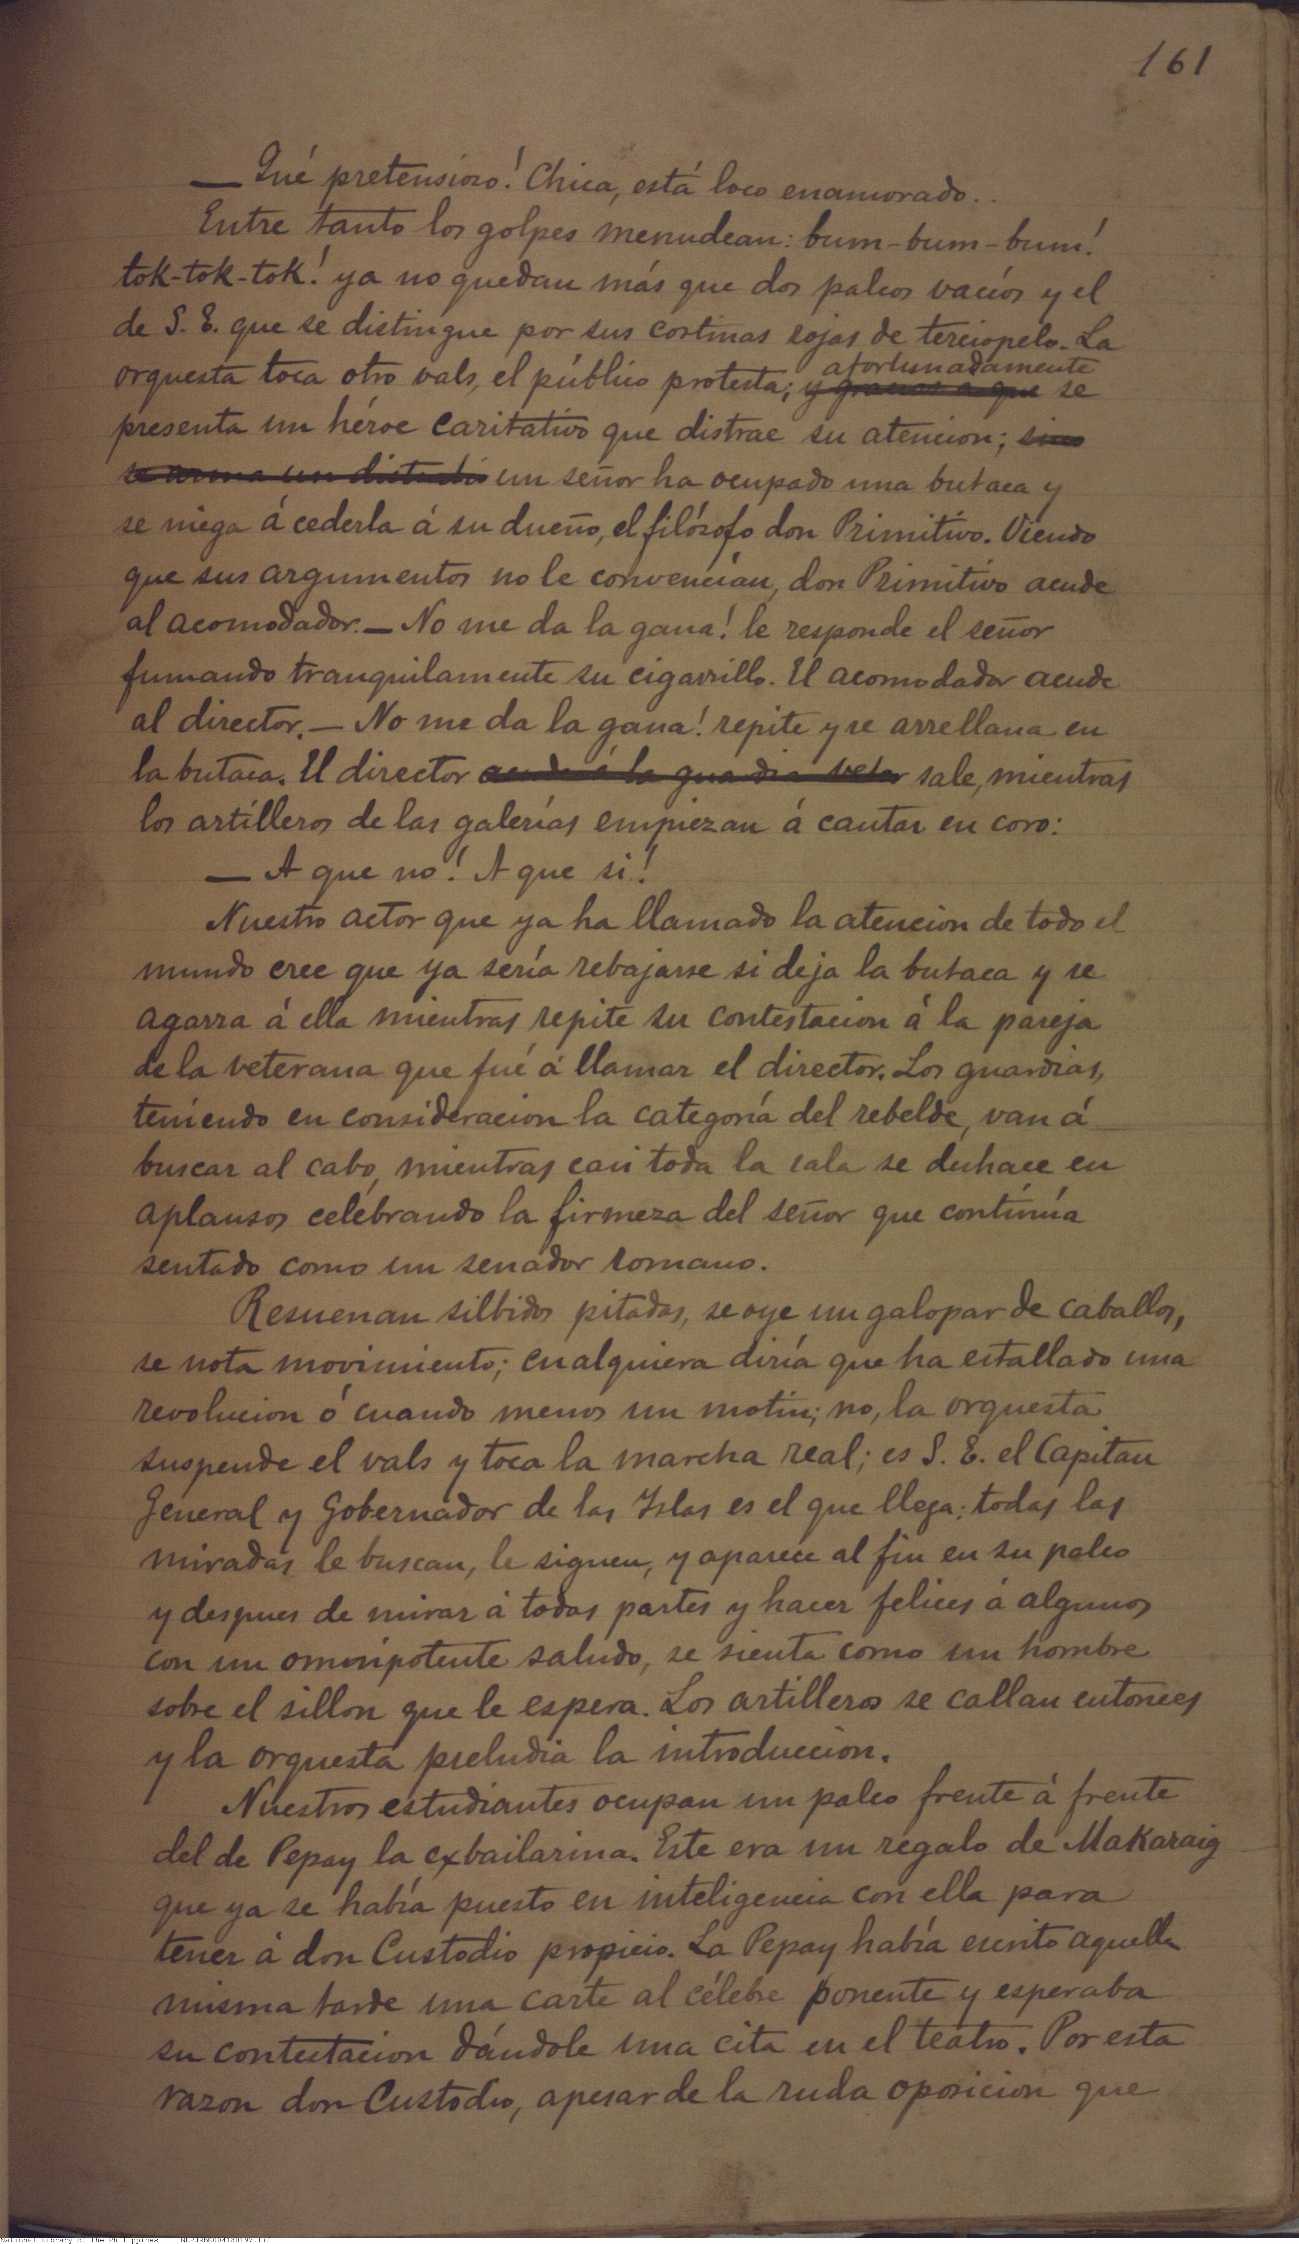 161
— Qué pretensioso! Chica, está loco enamorado..
Entre tanto los golpes menudean: bum-bum-bum!
tok-tok-tok! ya no quedan más que dos palcos vacíos y el
de S. E. que se distingue por sus cortinas rojas de terciopelo. La
orquesta toca otro vals, el público protesta; y gracias a que afortunadamente se
presenta un héroe caritativo que distrae su atencion; sino
se arma un disturbio un señor ha ocupado una butaca y
se niega á cederla á su dueño, el filósofo don Primitivo. Viendo
que sus argumentos no le convencían, don Primitivo acude
al acomodador. — No me da la gana! le responde el señor
fumando tranquilamente su cigarrillo. El acomodador acude
al director. — No me da la gana! repite y se arrellana en
la butaca. El director acude á la guardia veter sale, mientras
los artilleros de las galerías empiezan á cantar en coro:
— A que no! A que si!
Nuestro actor que ya ha llamado la atencion de todo el
mundo cree que ya sería rebajarse si deja la butaca y se
agarra á ella mientras repite su contestacion á la pareja
de la veterana que fué á llamar el director. Los guardias,
teniendo en consideracion la categoría del rebelde, van á
buscar al cabo, mientras casi toda la sala se deshace en
aplausos celebrando la firmeza del señor que continúa
sentado como un senador romano.
Resuenan silbidos pitadas, se oye un galopar de caballos,
se nota movimiento; cualquiera diría que ha estallado una
revolucion ó cuando menos un motin; no, la orquesta
suspende el vals y toca la marcha real; es S. E. el Capitan
General y Gobernador de las Islas es el que llega: todas las
miradas le buscan, le siguen, y aparece al fin en su palco
y despues de mirar á todas partes y hacer felices á algunos
con un omnipotente saludo, se sienta como un hombre
sobre el sillon que le espera. Los artilleros se callan entonces
y la orquesta preludia la introduccion.
Nuestros estudiantes ocupan un palco frente á frente
del de Pepay la exbailarina. Este era un regalo de Makaraig
que ya se había puesto en inteligencia con ella para
tener á don Custodio propicio. La Pepay había escrito aquella
misma tarde una carta al célebre ponente y esperaba
su contestacion dándole una cita en el teatro. Por esta
razon don Custodio, apesar de la ruda oposicion que